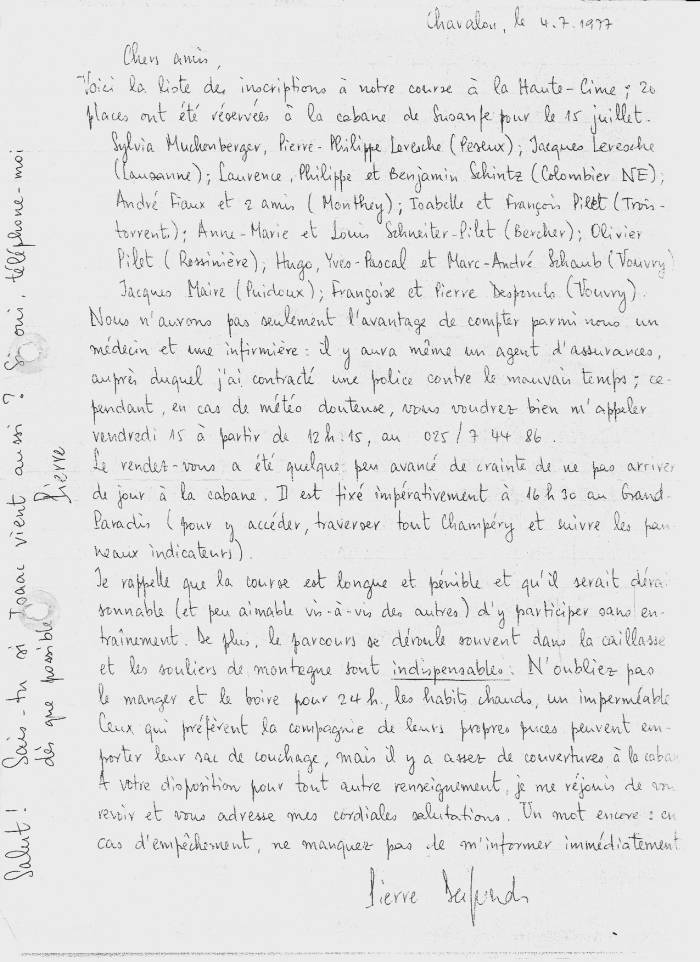 Chavalon, le 4.7.1977
Chers amis,
Voici la liste des inscriptions à notre course à la Haute-Cime ; 20
places ont été réservées à la cabane de Susanfe pour le 15 juillet.
Sylvia Muchenberger, Pierre-Philippe Leresche (Peseux) ; Jacques Leresche
(Lausanne) ; Laurence, Philippe et Benjamin Schintz (Colombier NE) ;
André Fiaux et 2 amis (Monthey) ; Isabelle et François Pilet (Trois-
torrents) ; Anne-Marie et Louis Schneiter-Pilet (Bercher) ; Olivier
Pilet (Rossinière) ; Hugo, Yves-Pascal et Marc-André Schaub (Vouvry)
Jacques Maire (Puidoux) ; Françoise et Pierre Desponds (Vouvry).
Nous n'aurons pas seulement l'avantage de compter parmi nous un
médecin et une infirmière : il y aura même un agent d'assurances,
auprès duquel j'ai contracté une police contre le mauvais temps ; ce-
pendant, en cas de météo douteuse, vous voudrez bien m'appeler
vendredi 15 à partir de 12 h.15, au 025/7 44 86.
Le rendez-vous a été quelque peu avancé de crainte de ne pas arriver
de jour à la cabane. Il est fixé impérativement à 16 h 30 au Grand-
Paradis (pour y accéder, traverser tout Champéry et suivre les pan-
neaux indicateurs).
Je rappelle que la course est longue et pénible et qu'il serait dérai
sonnable (et peu aimable vis-à-vis des autres) d'y participer sans en-
traînement. De plus, le parcours se déroule souvent dans la caillasse
et les souliers de montagne sont indispensables. N'oubliez pas
le manger et le boire pour 24 h., les habits chauds, un imperméable
Ceux qui préfèrent la compagnie de leurs propres puces peuvent em-
porter leur sac de couchage, mais il y a assez de couvertures à la caban
A votre disposition pour tout autre renseignement, je me réjouis de vou
revoir et vous adresse mes cordiales salutations. Un mot encore : en
cas d'empêchement, ne manquez pas de m'informer immédiatement
Pierre Desponds
Salut ! Sais-tu si Isaac vient aussi ? Si oui, téléphone-moi
dès que possible Pierre